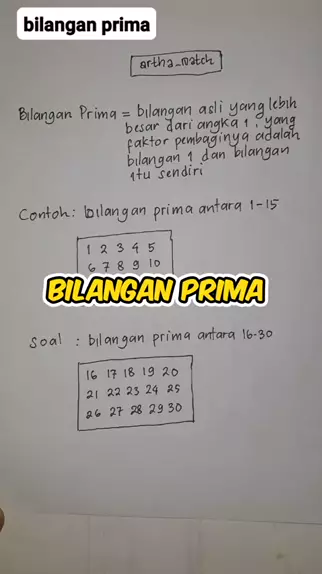 bilangan prima
artha_match
Bilangan Prima = bilangan asli yang lebih
besar dari angka 1, yang
faktor pembaginya adalah
bilangan 1 dan bilangan
itu sendiri
Contoh: bilangan prima antara 1-15
1 2 3 4 5
6 7 8 9 10
BILANGAN PRIMA
Soal : bilangan prima antara 16-30
16 17 18 19 20
21 22 23 24 25
26 27 28 29 30